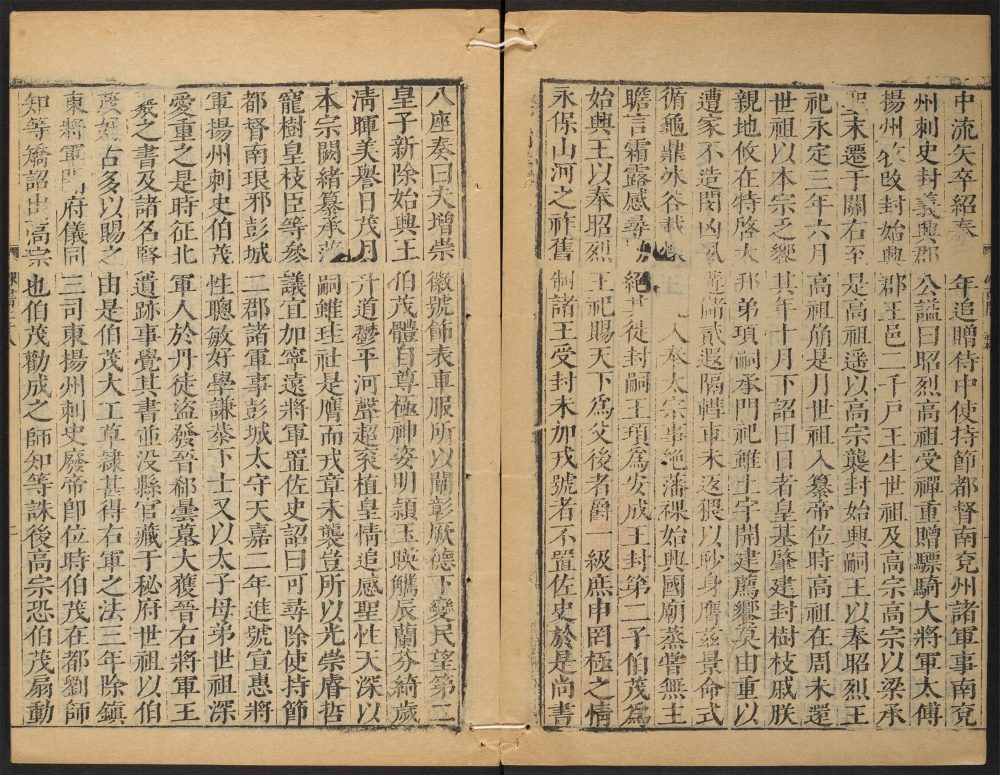 中流矢卒紹泰年追贈侍中使持節都督南兗州諸軍事南兗
州刺史封義興郡公謚曰昭烈高祖受禪重贈驃騎大將軍太傅
揚州牧改封始興郡王邑二千戶王生世祖及高宗高宗以梁承
聖末遷于關右至是高祖遙以高宗襲封始興嗣王以奉昭烈王
祀永定三年六月高祖崩是月世祖入纂帝位時高祖在周未還
世祖以本宗乏饗其年十月下詔曰日者皇基肇建封樹枝戚朕
親地攸在特啓大邦弟頊嗣承門祀雖土宇開建薦饗莫由重以
遭家不造閔凶夙遘儲貳遐隔轉車未返猥以眇身膺茲景命式
循龜鼎冰谷載懷入奉大宗事絕藩祼始興國廟蒸嘗無主
瞻言霜露感尋絕其徙封嗣王頊為安成王封第二子伯茂為
始興王以奉昭烈王祀賜天下為父後者爵一級庶申罔極之情
永保山河之祚舊制諸王受封未加戎號者不置佐史於是尚書
八座奏曰夫增崇徽號飾表車服所以闡彰厥德下變民望第二
皇子新除始興王伯茂體自尊極神姿明穎玉暎觿辰蘭芬綺歲
清暉美譽日茂月升道鬱平河聲超袞植皇情追感聖性天深以
本宗闕緒纂承藩嗣雖珪社是膺而戎章未襲豈所以光崇睿哲
寵樹皇枝臣等參議宜加寧遠將軍置佐史詔曰可尋除使持節
都督南琅邪彭城二郡諸軍事彭城太守天嘉二年進號宣惠將
軍揚州刺史伯茂性聰敏好學謙恭下士又以太子母弟世祖深
愛重之是時征北軍人於丹徒盜發晉郗曇墓大獲晉右將軍王
羲之書及諸名賢遺跡事覺其書並没縣官藏于秘府世祖以伯
茂好古多以賜之由是伯茂大工草隸甚得右軍之法三年除鎮
東將軍開府儀同三司東揚州刺史廢帝卽位時伯茂在都劉師
知等矯詔出高宗也伯茂勸成之師知等誅後高宗恐伯茂扇動